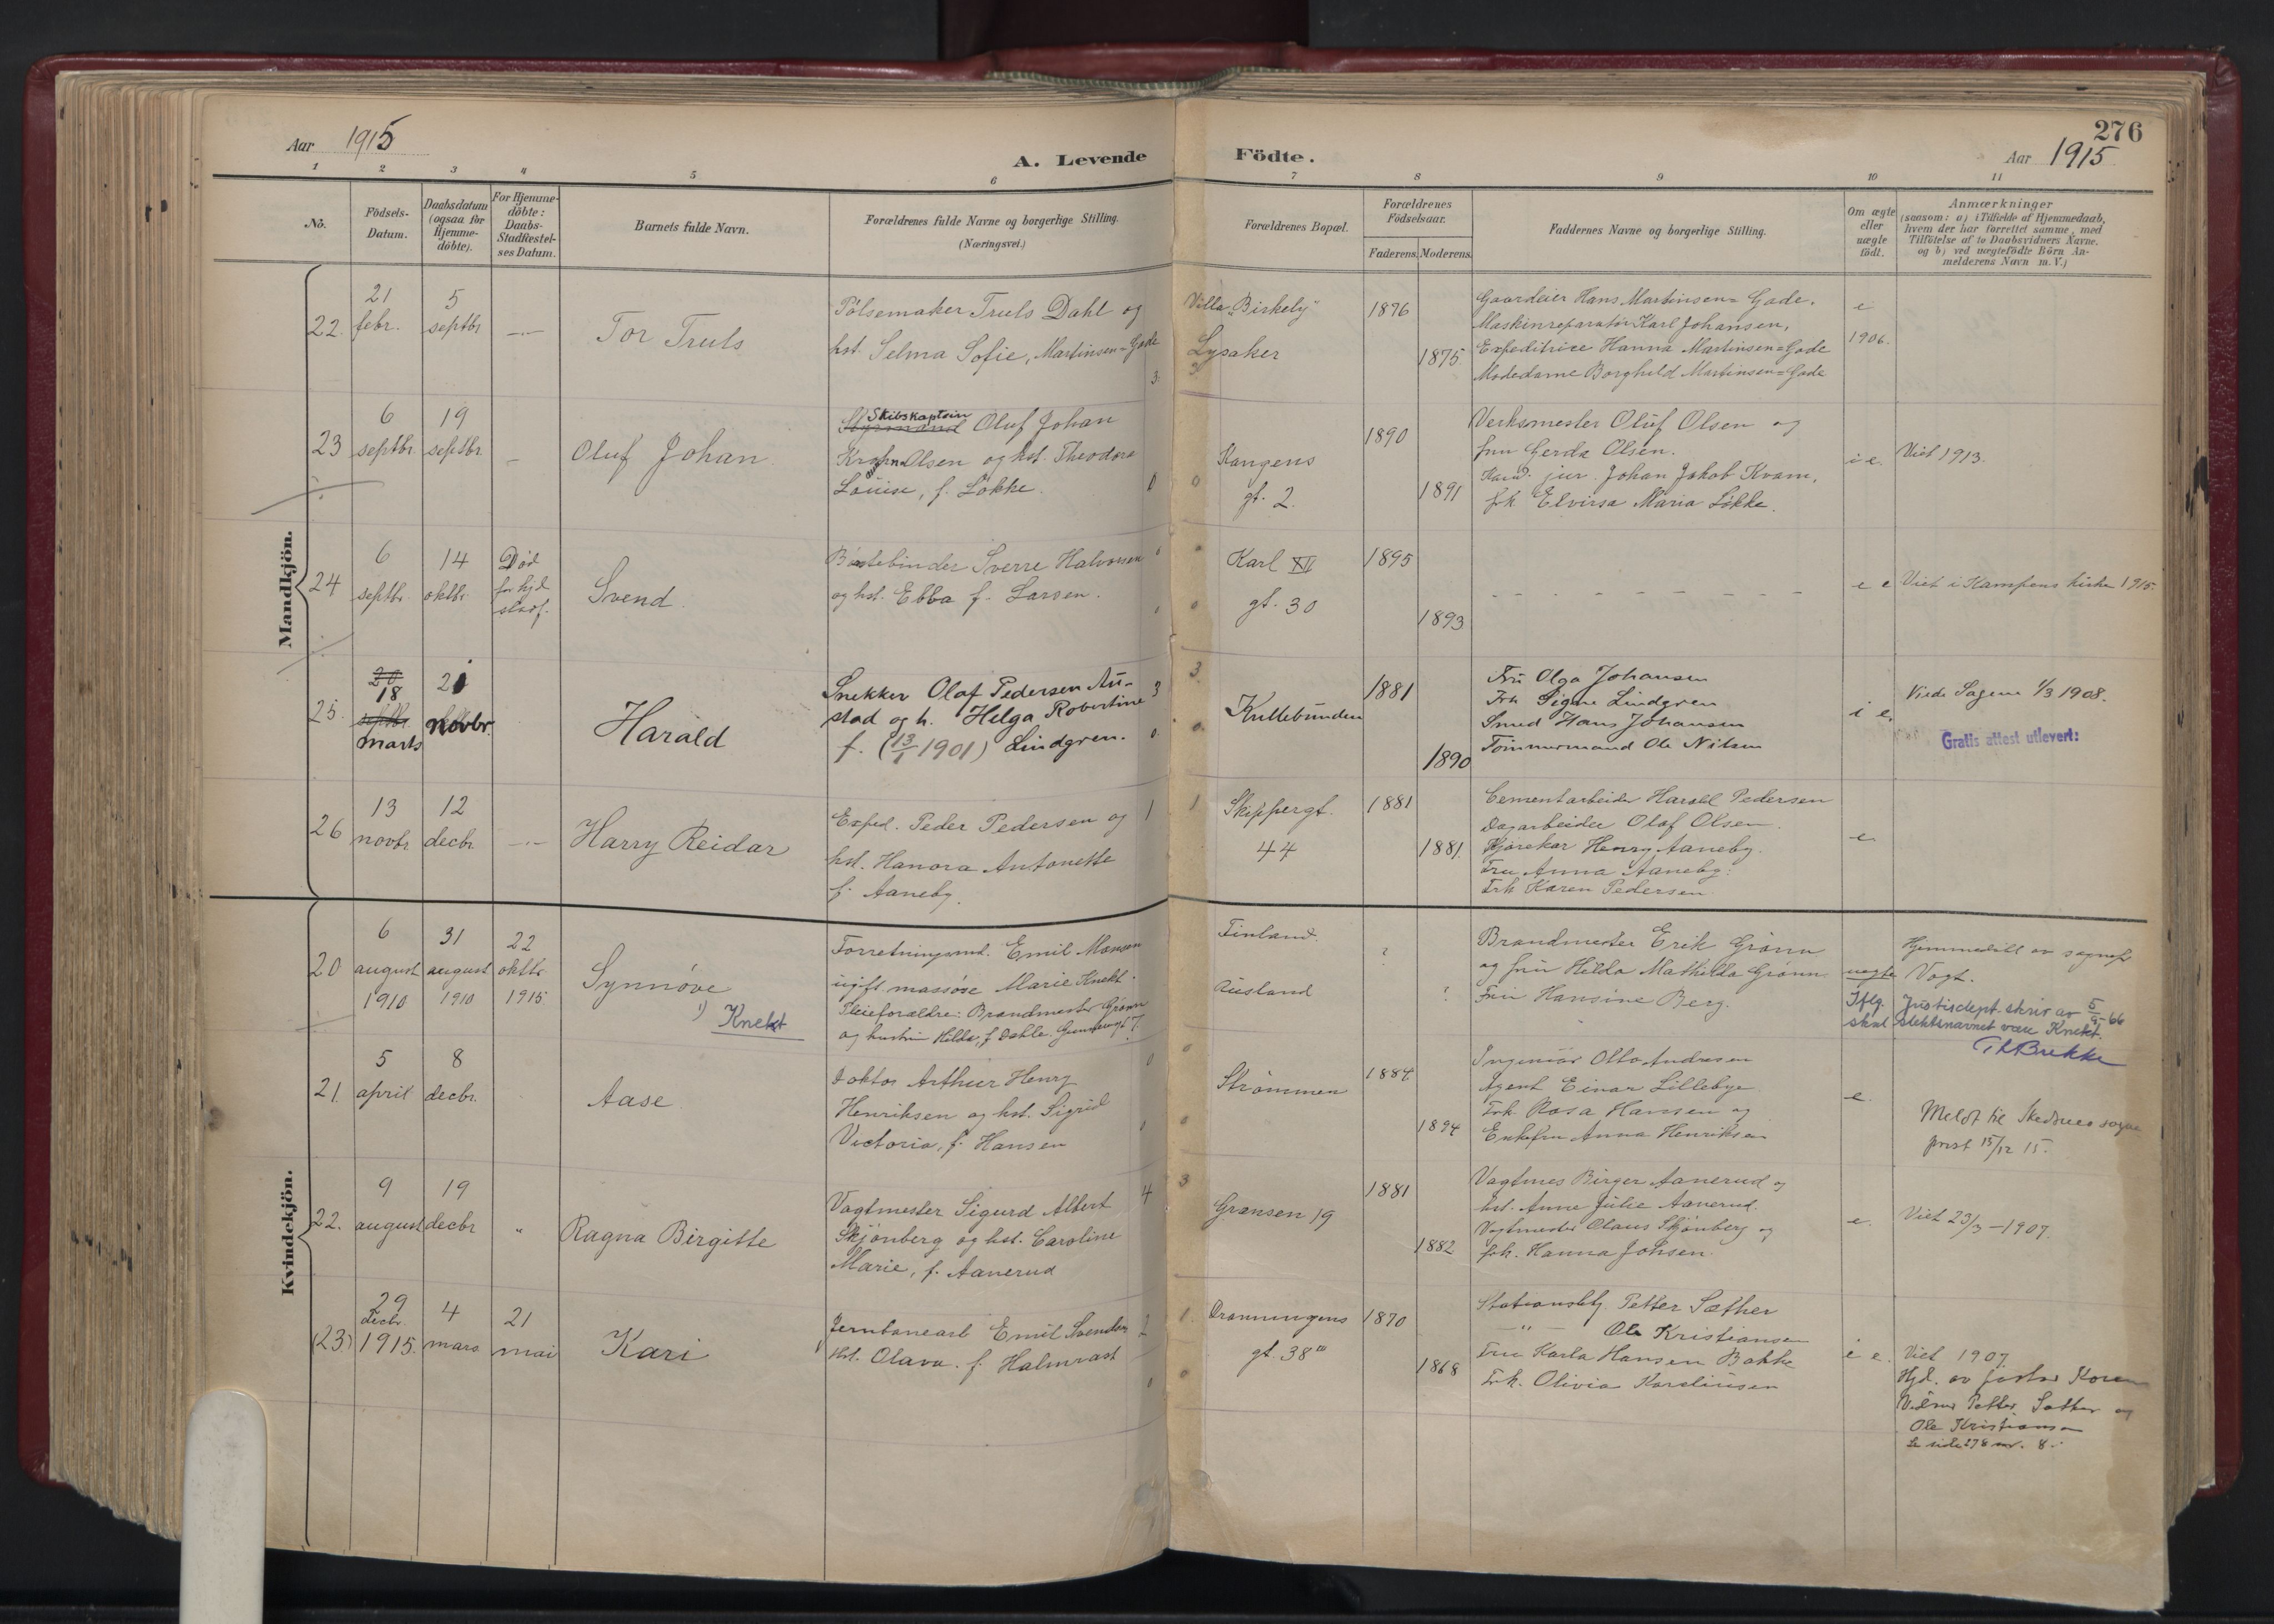 Aar 1915
A. Levende Födte.
276
Aar 1915
1 2 3 4 5 6 7 8 9 10 11
No.
Födsels-
Datum.
Daabsdatum
(ogsaa for
Hjemme-
döbte).
For Hjemme-
döbte:
Daabs-
Stadfæstel-
ses Datum.
Barnets fulde Navn.
Forældrenes fulde Navne og borgerlige Stilling.
(Næringsvei.)
Forældrenes Bopæl.
Forældrenes
Födselsaar.
Faderens. Moderens.
Faddernes Navne og borgerlige Stilling.
Om ægte
eller
uægte
födt.
Anmærkninger
(saasom: a) i Tilfælde af Hjemmedaab,
hvem der har forrettet samme, med
Tilföielse af to Daabsvidners Navne.
og b) ved uægtefödte Börn An-
melderens Navn m. V.)
Mandkjön.
22.
21
febr.
5
septbr
Tor Truls
Pölsemaker Truls Dahl og
hst. Selma Sofie, Martinsen=Gade
3.
Villa "Birkely"
Lysaker
3
1876
1875.
Gaardeier Hans Martinsen=Gade.
Maskinreparatör Karl Johansen,
Expeditrice Hanna Martinsen=Gade
Modedame Borghild Martinsen=Gade
e
1906.
23
6
septbr.
19
septbr
Oluf Johan
Skibskaptein
Styrmand Oluf Johan
Olsen og hst. Theodora
Louise, f. Løkke.
0
0
Kongens
gt. 2.
1890
1891
Verksmester Oluf Olsen og
fru Gerda Olsen.
Kand. jur. Johan Jakob Kvam,
frk Elvirsa Maria Løkke.
i e.
Viet 1913.
24
6
septbr.
14
oktbr.
Död
for hjd
stadf.
Svend
Børstebinder Sverre Halvorsen
og hst. Ebba f. Larsen.
0
0
Karl XII
gt. 30
1895
1893
e e
Viet i Kampens kirke 1915.
25.
20
18
septbr.
marts
21
novbr.
Harald
Snekker Olaf Pedersen Au-
stad og h. Helga Robertine
f. (13/1 1901) Lindgren.
3
0
3.
0.
Kullebunden
1881
1890
Fru Olga Johansen
Frk Signe Lindgren
Smed Hans Johansen
Tömmermand Ole Nilsen
i e.
Viede Sagene 1/3 1908.
Gratis attest utlevert:
26
13
novbr
12
decbr.
Harry Reidar
Exped. Peder Pedersen og
hst. Hanora Antonette
f. Aaneby.
1
1
Skippergt.
44
1881
1881.
Cementarbeider Harald Pedersen
Dagarbeider Olaf Olsen.
Kjörekar Henry Aaneby.
Fru Anna Aaneby.
Frk Karen Pedersen.
e
Kvindekjön.
20
6
august
1910
31
august
1910
22
oktbr.
1915
Synnöve
1) Knekt
Forretningsmd. Emil Monsen
ugift massøse Marie Knekt.
Pleieforældre: Brandmester Grønn
og hustru Hilda, f. Dahle.
Finland.
Rusland
?
?
Brandmester Erik Grønn
og fru Hilda Mathilda Grønn.
Fru Hansine Berg.
uægte
Hjemmedöbt av sognepr.
Vogt.
Iflg. Justisdept. skriv av 5/9-66
skal slektsnavnet være Knekt.
Th Brekke
21.
5
april
8
decbr.
Aase
Doktor Arthur Henry
Henriksen og hst. Sigrid
Victoria, f. Hansen
0
0
Strömmen
1884
1894
Ingeniör Otto Andresen
Agent Einar Lillebye
Frk. Rosa Hansen og
Enkefru Anna Henriksen
e.
Meldt til Skedsmo sogne
prest 15/12 15.
22.
9
august
19
decbr
"
Ragna Birgitte
Vagtmester Sigurd Albert
Skjönberg og hst. Caroline
Marie, f. Aanerud
4
3
Grænsen 19
1881
1882
Vagtmes Birger Aanerud og
hst. Anne Julie Aanerud.
Vagtmester Olaus Skjönberg og
frk. Hanna Johsen.
e.
Viet 23/3-1907.
(23.)
29
decbr.
1915.
4
mars
21
mai
Kari
Jernbanearb Emil Svendsen
hst. Olava. f. Halmrast
2
0
1.
0
Dronningens
gt. 38
1870
1868
Stationsbtj Petter Sæther
—"— Ole Kristiansen
Fru Karla Hansen Bakke
Frk. Olivia Karoliusen
i e.
Viet 1907.
Hjd. av pastor Koren
Vidner Petter Sæther og
Ole Kristiansen
Se side 278 nr. 8.